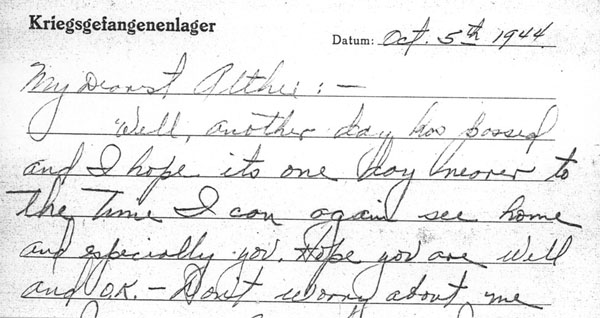 Kriegsgefangenenlager
Datum: Oct. 5th 1944.
My Dearest Althie : —
Well, another day has passed
and I hope its one day nearer to
the Time I can again see home
and especially you. Hope you are well
and O.K. — Don't worry about me